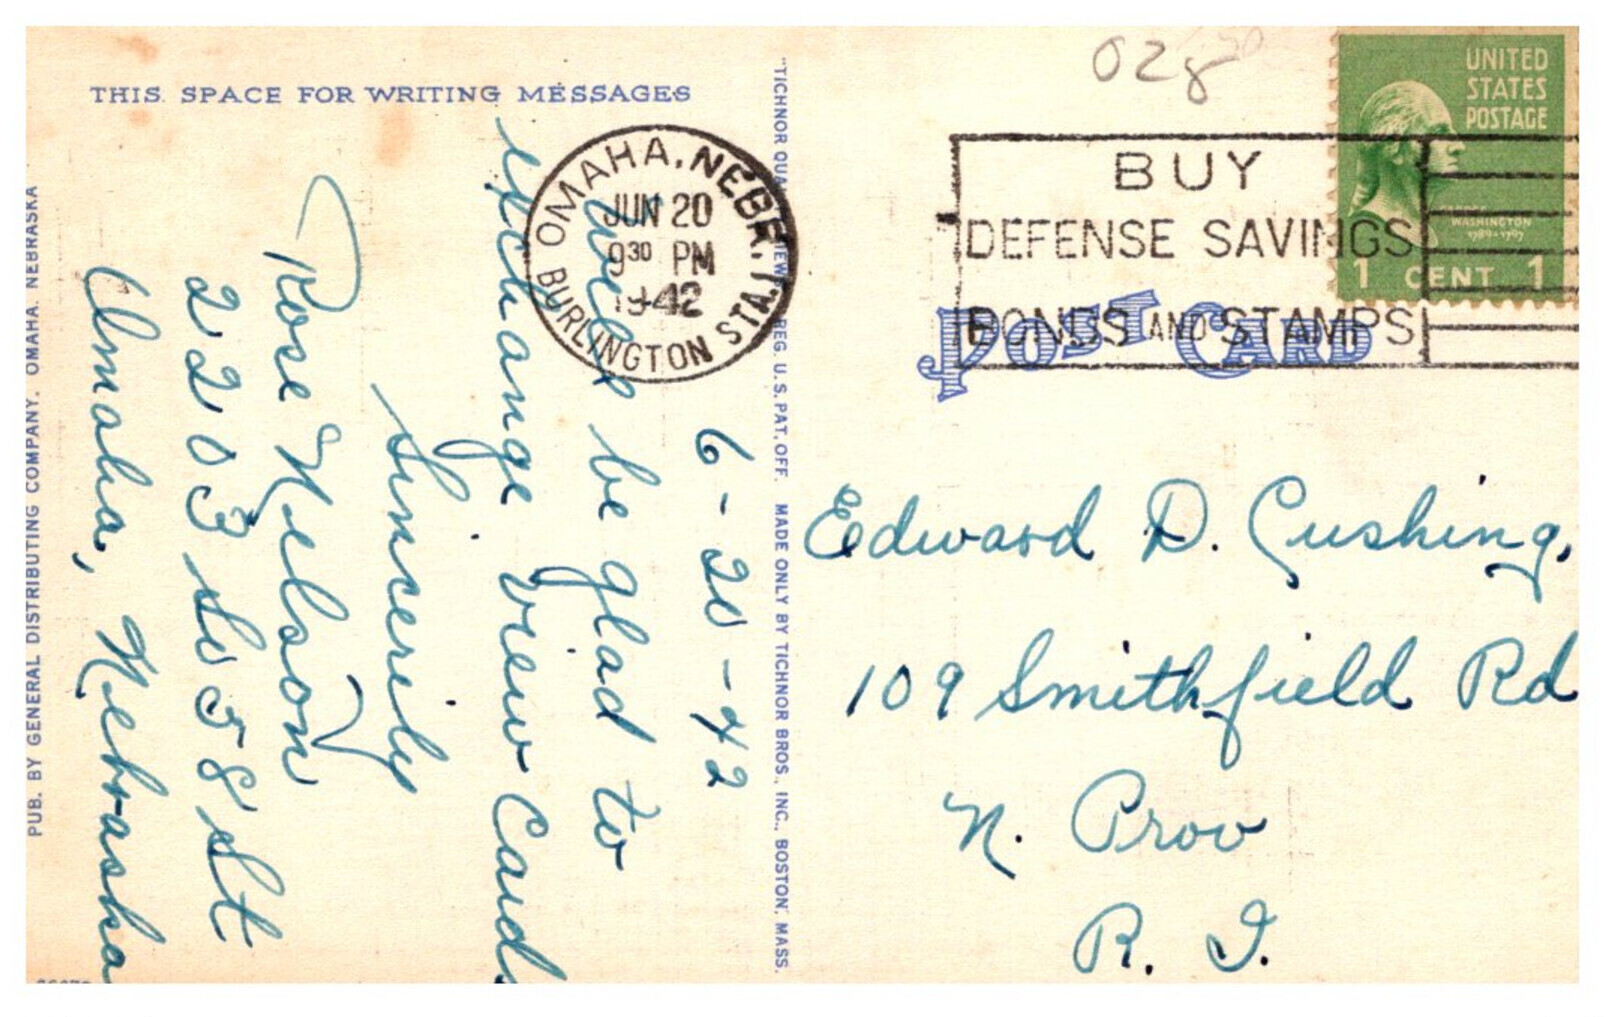 THIS SPACE FOR WRITING MESSAGES
6-20-42
be glad to
exchange view cards
Sincerely
Rose Nelson
2203 So 58 St
Omaha, Nebraska
PUB. BY GENERAL DISTRIBUTING COMPANY. OMAHA. NEBRASKA
OMAHA, NEBR.
BURLINGTON STA.
JUN 20
9 30 PM
1942
"TICHNOR REG. U.S. PAT. OFF. MADE ONLY BY TICHNOR BROS., INC., BOSTON, MASS.
028
BUY
DEFENSE SAVINGS
BONDS AND STAMPS
UNITED
STATES
POSTAGE
WASHINGTON
1789-1797
1 CENT 1
POST CARD
Edward D. Cushing,
109 Smithfield Rd
N. Prov
R. I.